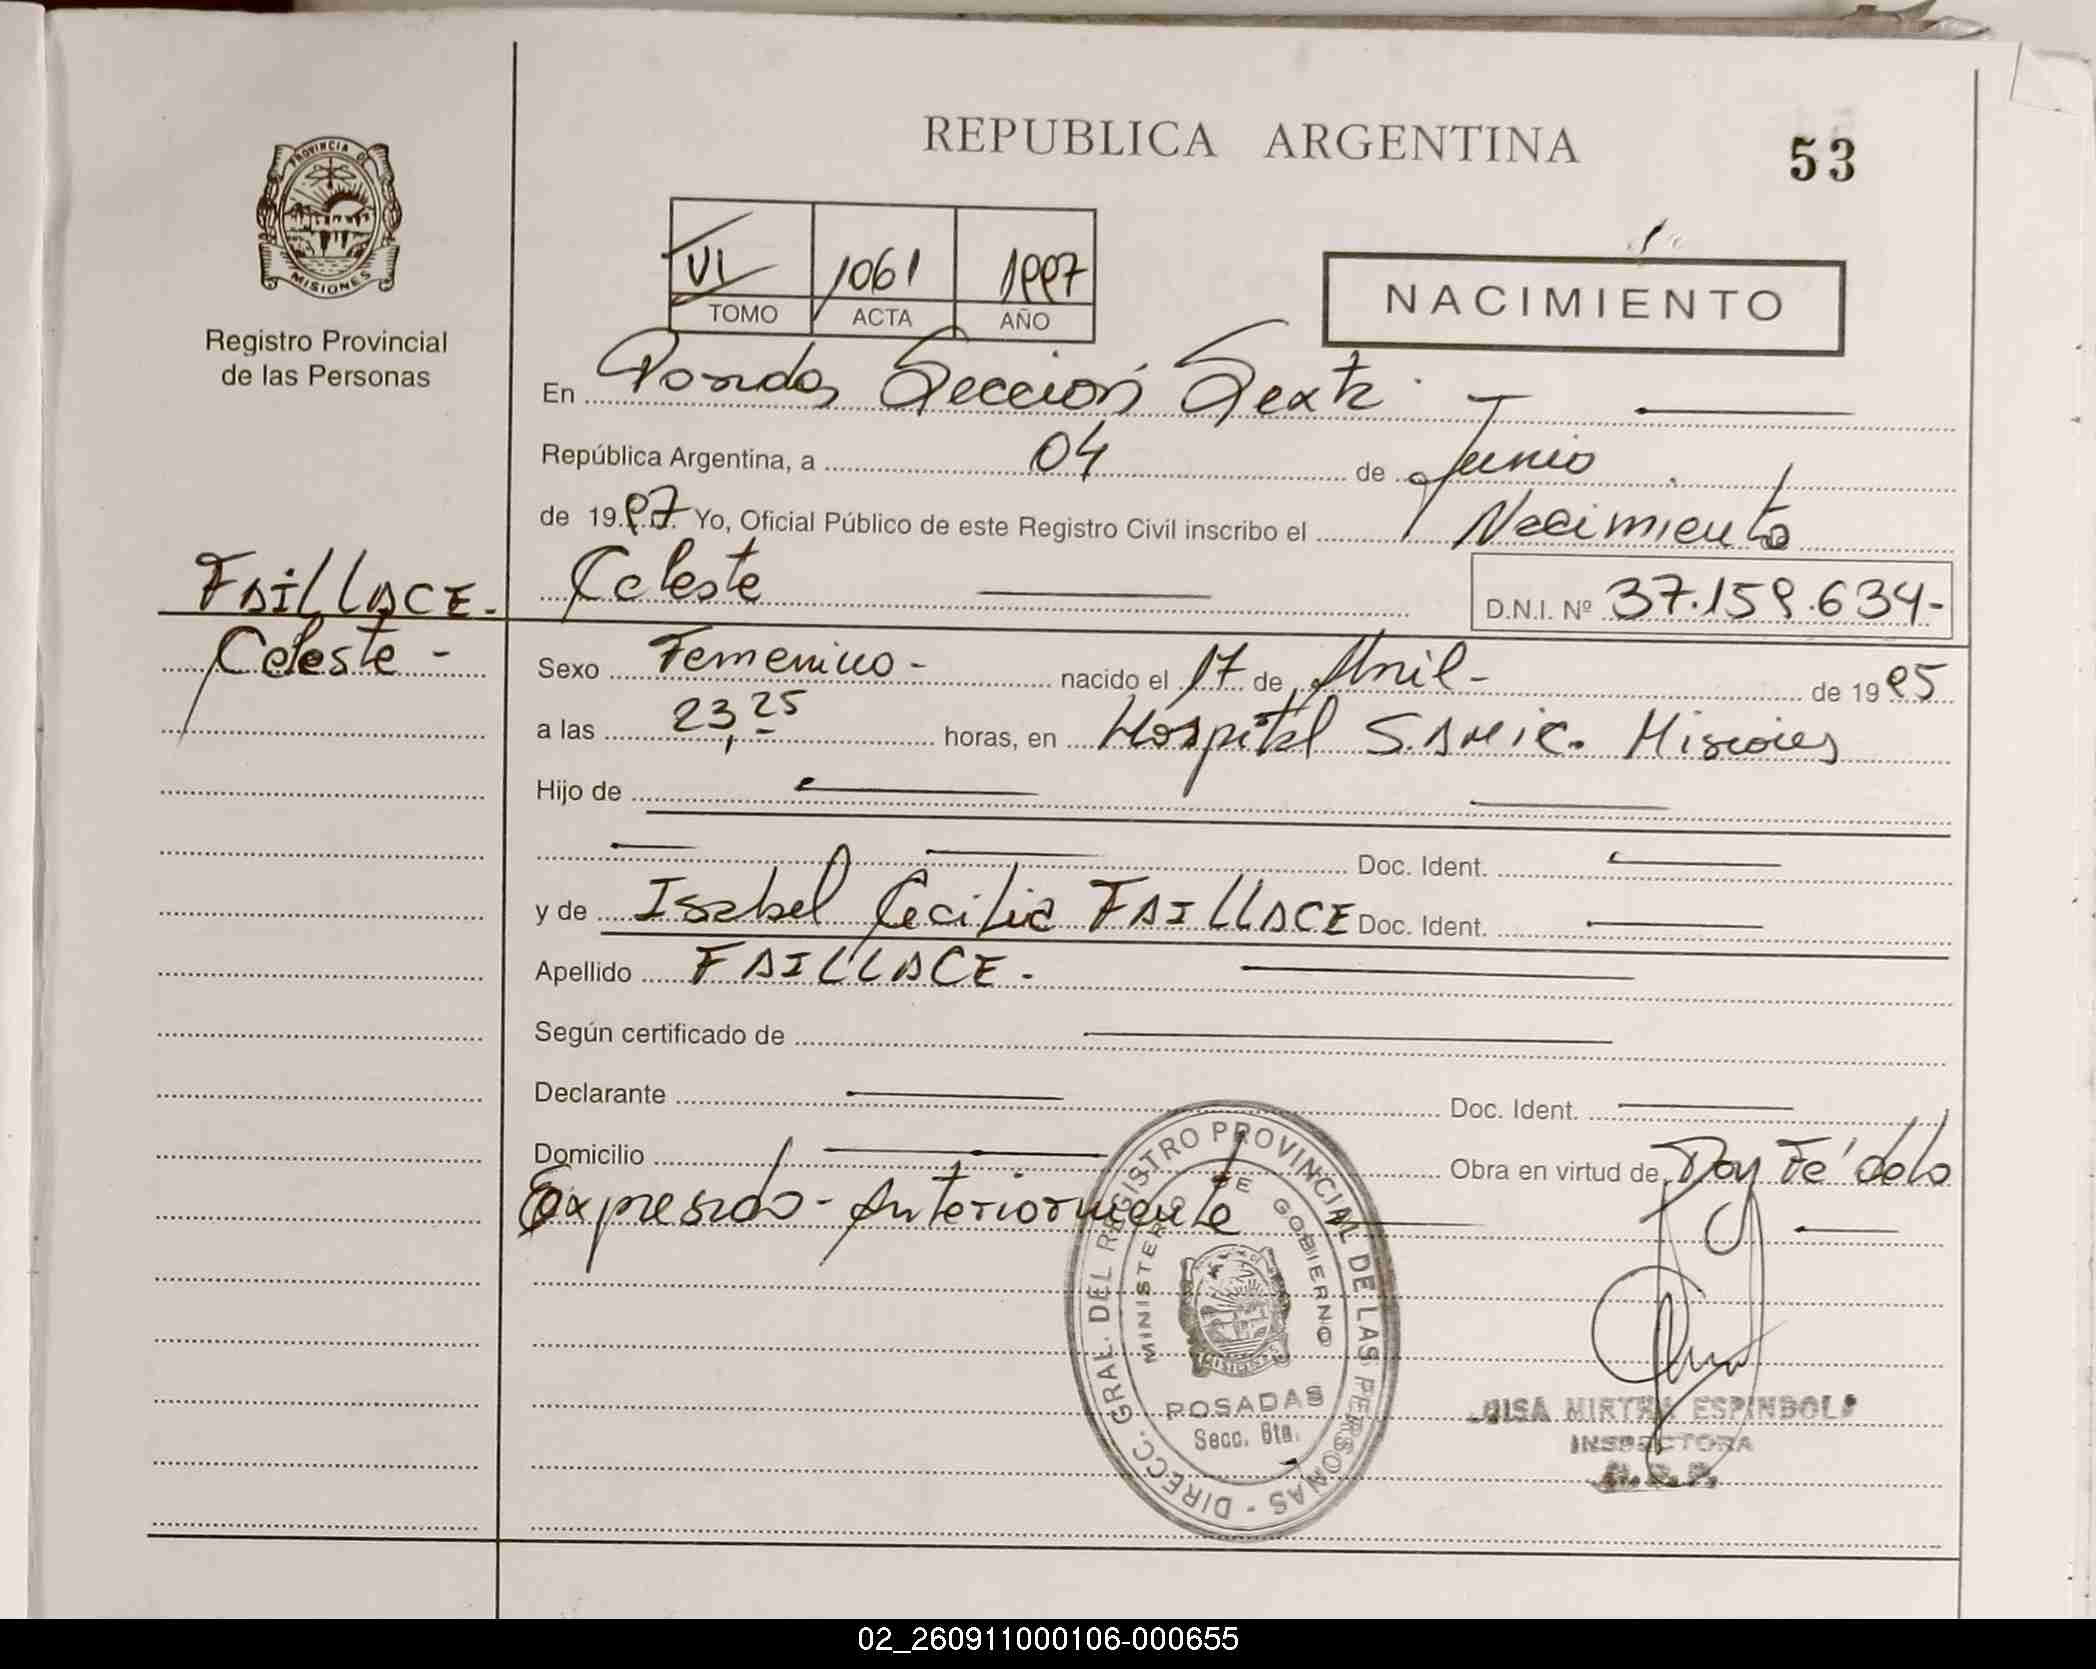 REPUBLICA ARGENTINA
53
PROVINCIA DE
MISIONES
Registro Provincial
de las Personas
VI 1061 1997
TOMO ACTA AÑO
NACIMIENTO
En Posadas Sección Sexta.
República Argentina, a 04 de Junio
de 1997 Yo, Oficial Público de este Registro Civil inscribo el Nacimiento
FAILLACE. Celeste D.N.I. Nº 37.159.634-
Celeste -
Sexo Femenino - nacido el 17 de Abril - de 1995
a las 23,25 horas, en Hospital S.AMIC. Misiones
Hijo de
Doc. Ident.
y de Isabel Cecilia FAILLACE Doc. Ident.
Apellido FAILLACE.
Según certificado de
Declarante Doc. Ident.
Domicilio Obra en virtud de Doy Fé delo
Expresado - Anteriormente
DIRECC. GRAL. DEL REGISTRO PROVINCIAL DE LAS PERSONAS -
MINISTERIO DE GOBIERNO
MISIONES
POSADAS
Secc. 6ta.
LUISA MIRTHA ESPINDOLA
INSPECTORA
02_260911000106-000655